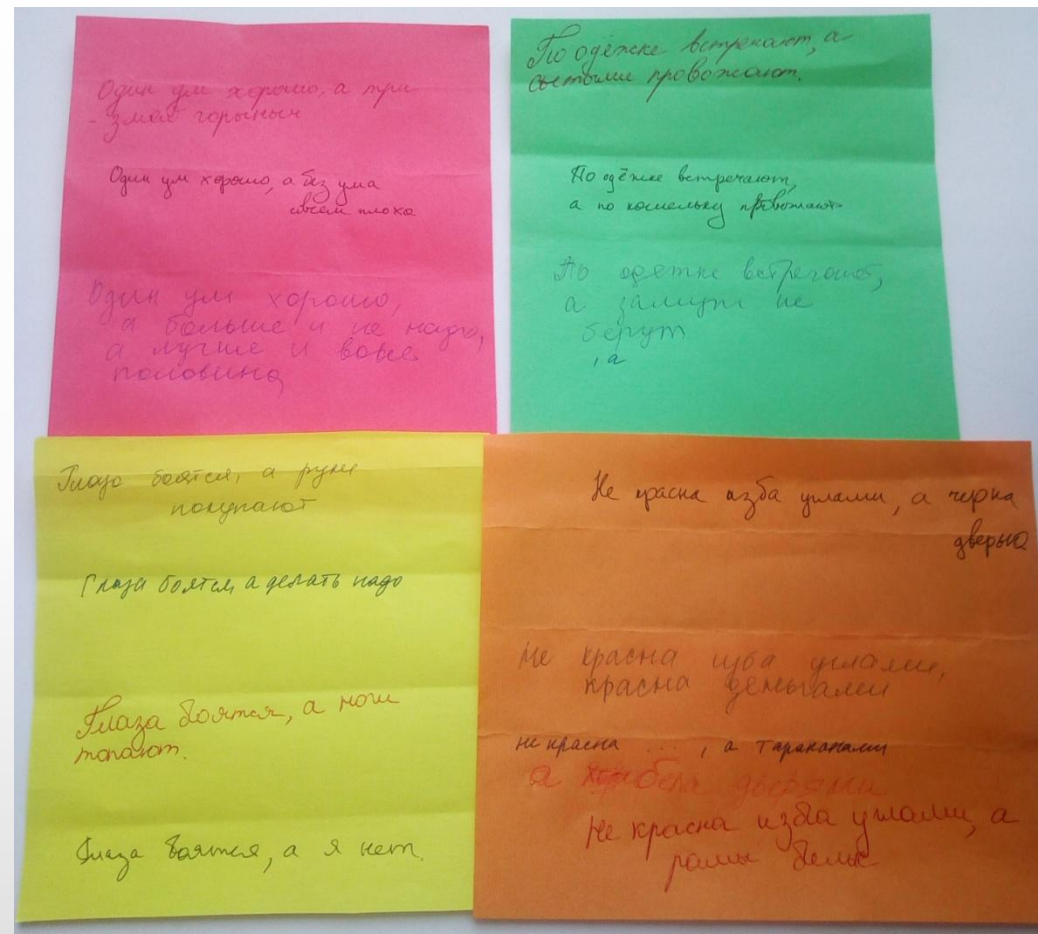 Один ум хорошо, а три
- змея горыныч
Один ум хорошо, а без ума
совсем плохо
Один ум хорошо,
а больше и не надо,
а лучше и вовсе
половина
По одёжке встречают, а
сытыми провожают.
По одёжке встречают,
а по кошельку провожают
По одежке встречают,
а замуж не
берут
, а
Глаза боятся, а руки
покупают
Глаза боятся а делать надо
Глаза боятся, а ноги
топают.
Глаза боятся, а я нет.
Не красна изба углами, а черна
дверью
Не красна изба углами,
красна деньгами
не красна ... , а тараканами
а бела дверями
Не красна изба углами, а
рамы белые